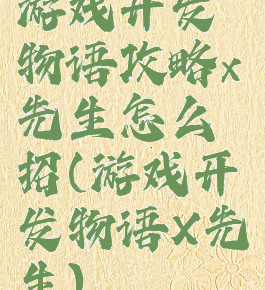 游戏开发
物语攻略x
先生怎么
招(游戏开
发物语X先
生)